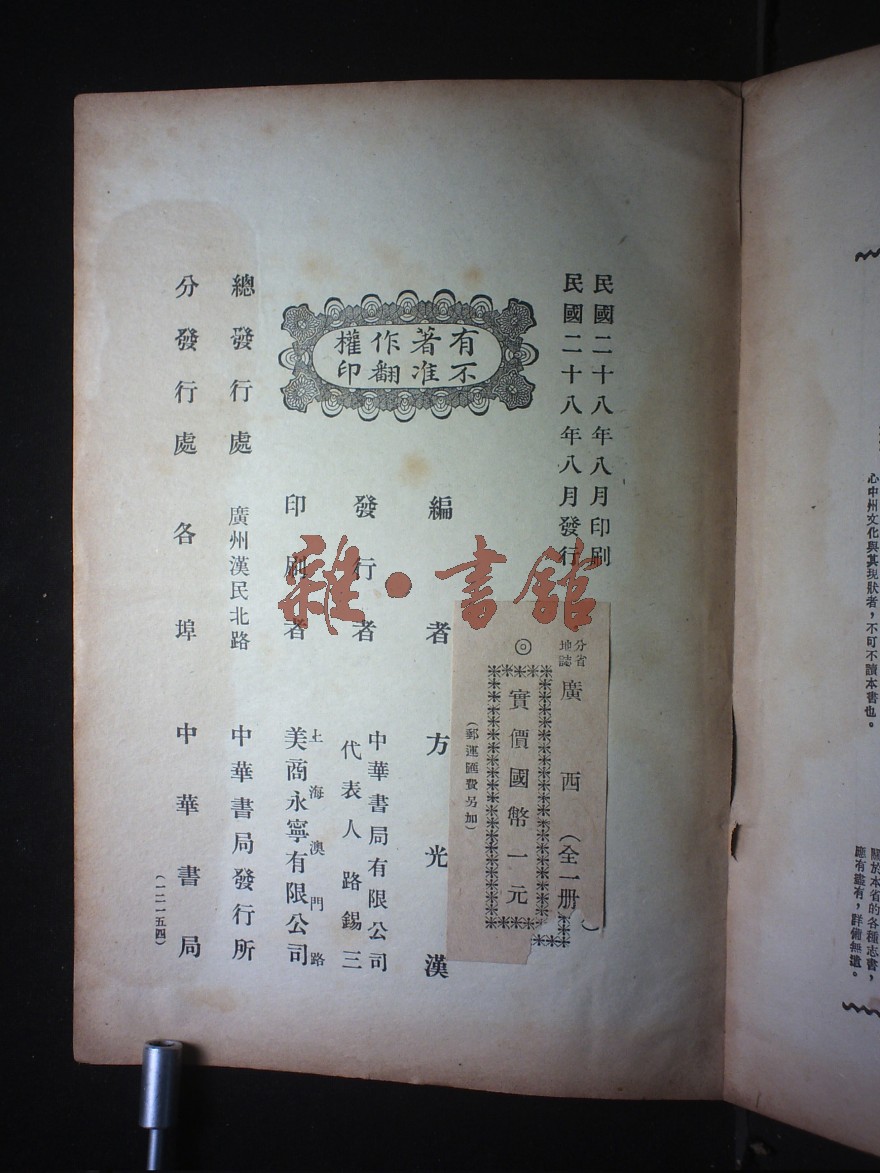 民國二十八年八月印刷
民國二十八年八月發行
分省
地誌
廣西（全一册）
◎
實價國幣一元
（郵運匯費另加）
有著作權
不准翻印
編者 方光漢
發行者 中華書局有限公司
代表人 路錫三
印刷者 上海澳門路
美商永寧有限公司
總發行處 廣州漢民北路 中華書局發行所
分發行處 各埠 中華書局
（一二一五四）
雜·書館
心中州文化與其現狀者，不可不讀本書也。
關於本省的各種志書，
應有盡有，詳備無遺。